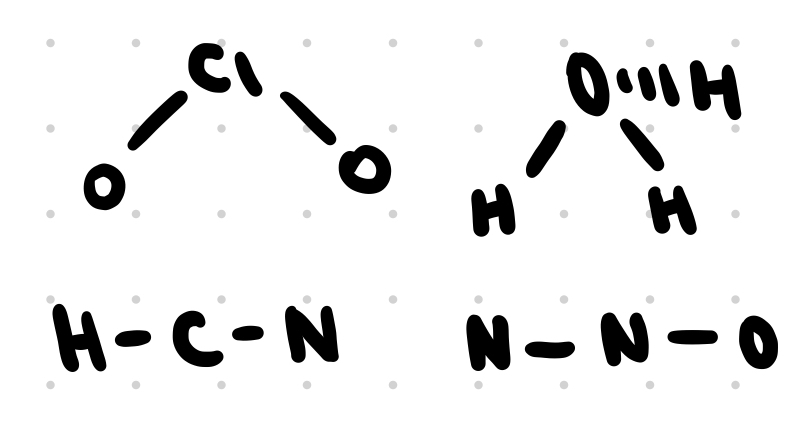 Cl O H
O O H H
H-C-N N-N-O